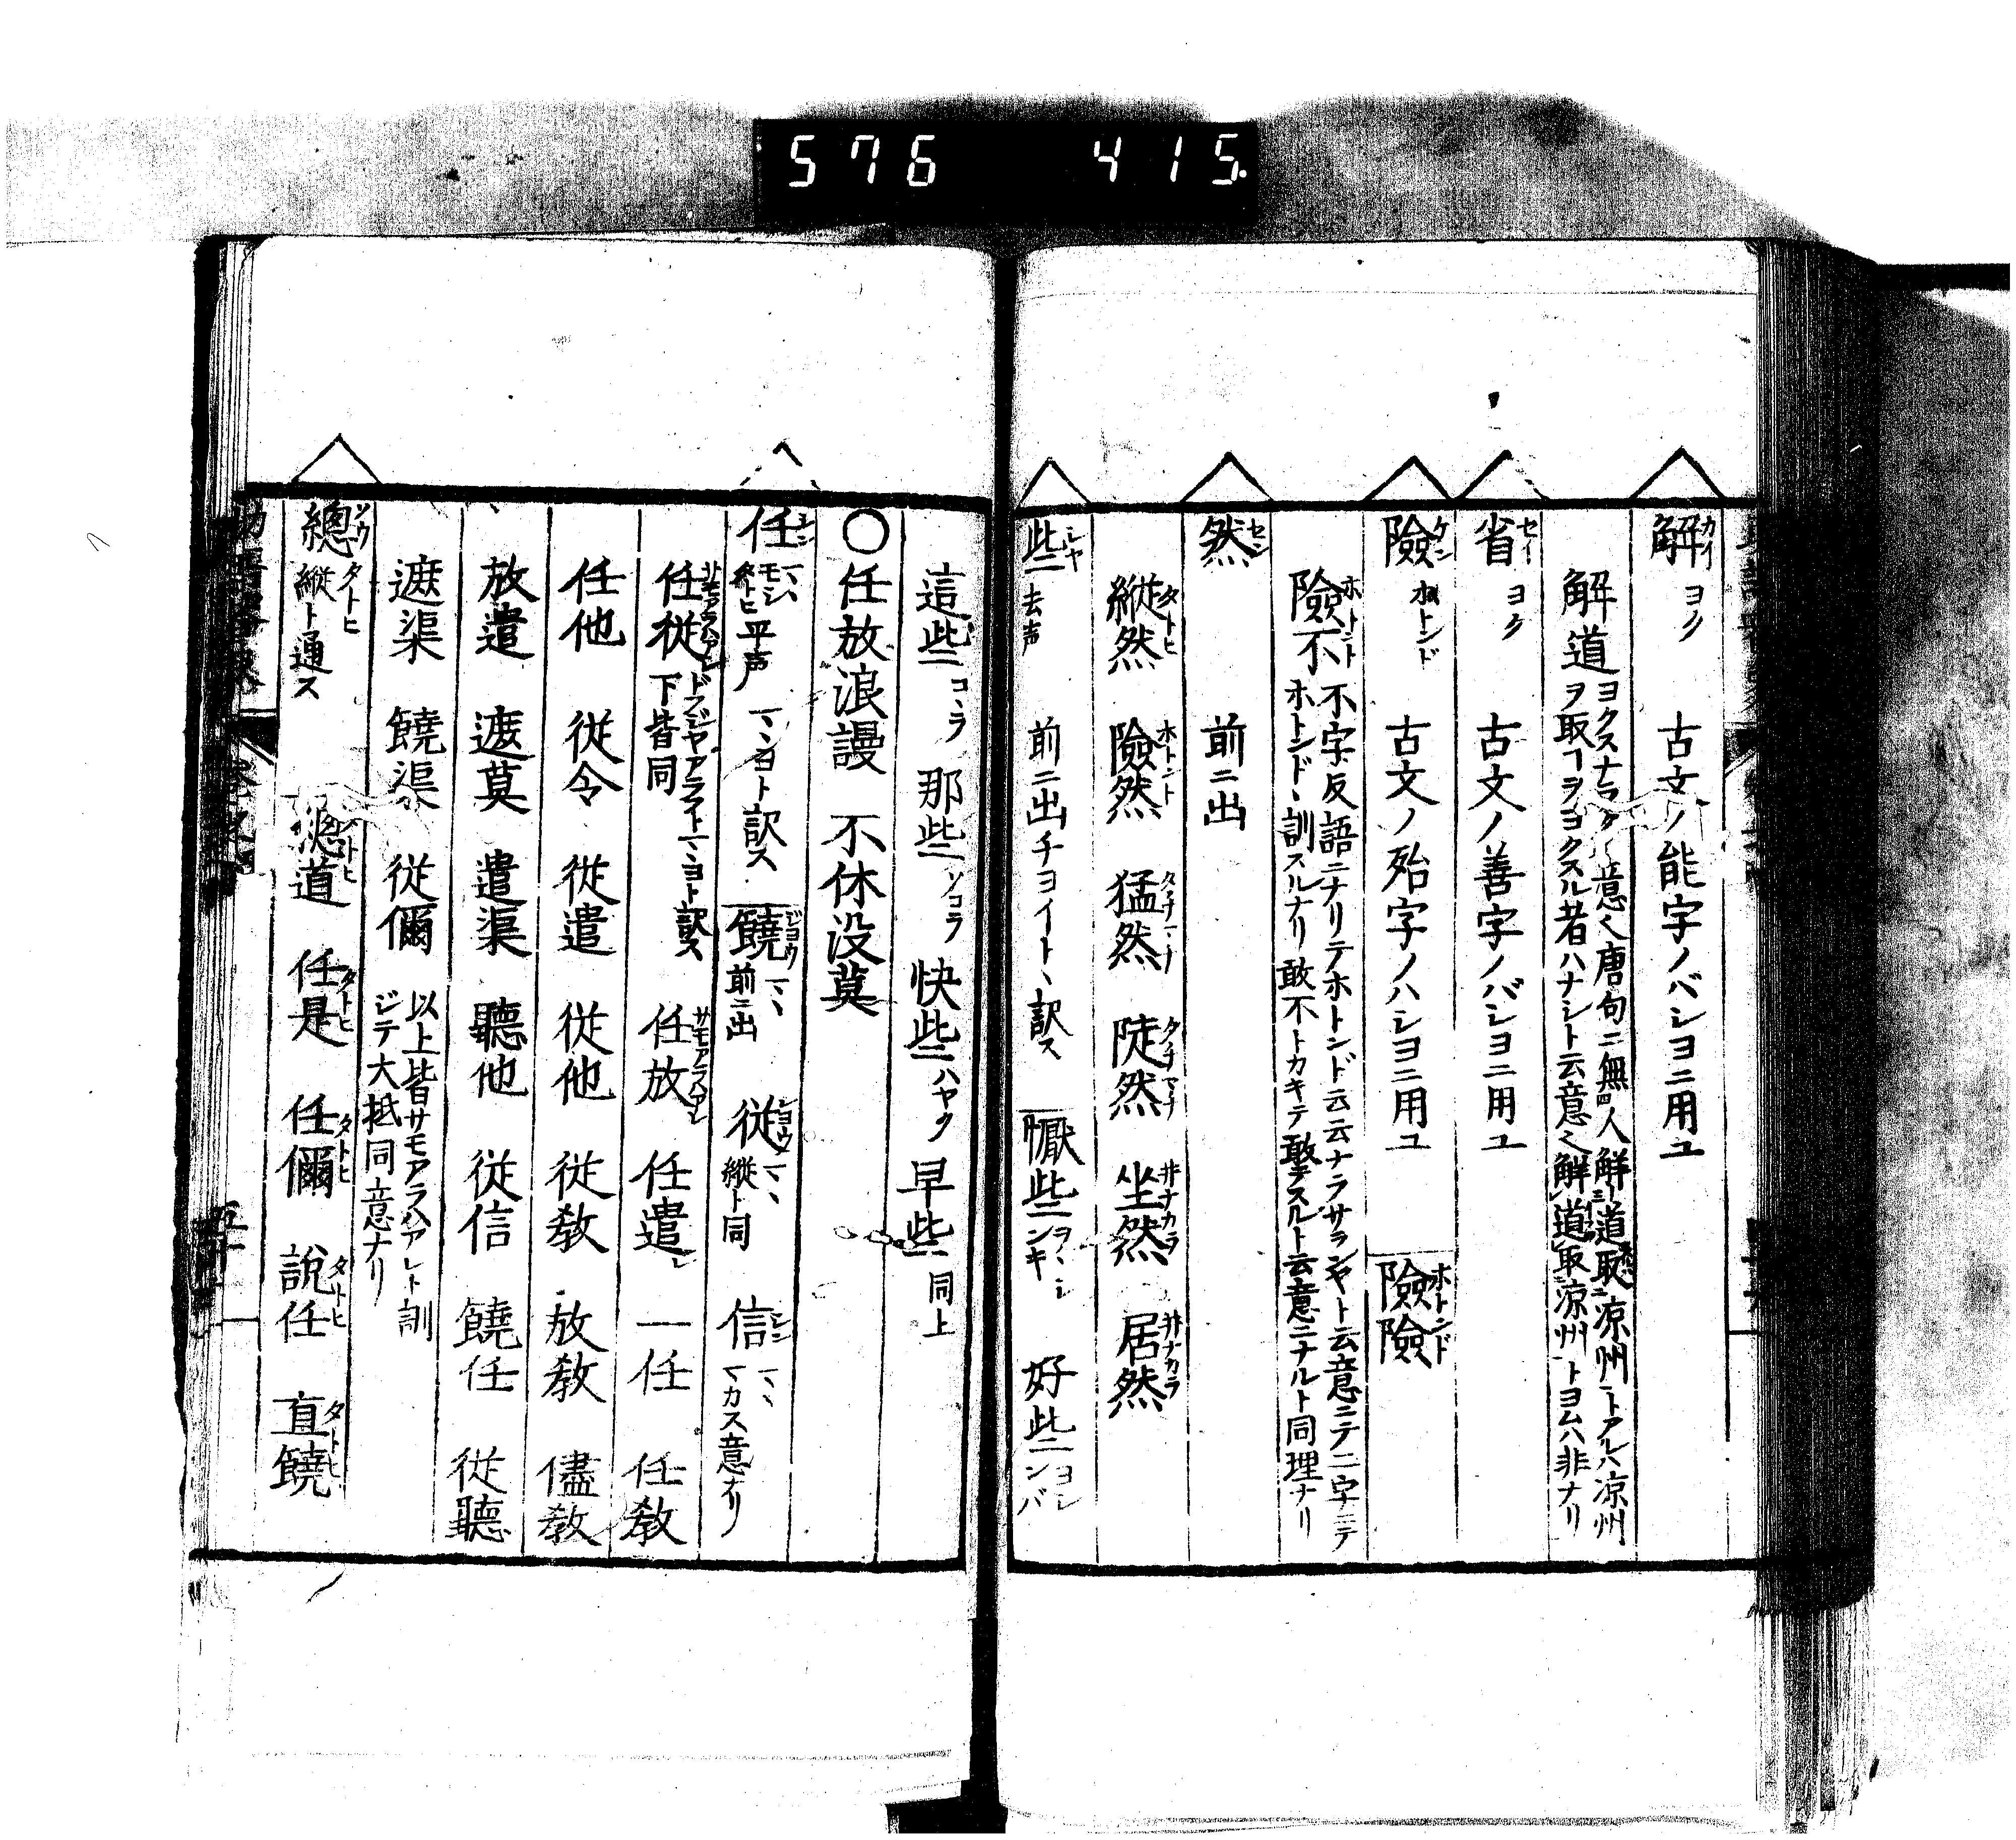 576 415.
解カイ ヨク 古文ノ能字ノバシヨニ用ユ
解道 ヨクスナラ 意也唐句ニ無人解道取凉州トアルハ凉州
ヲ取ヿヲヨクスル者ハナシト云意也解道取凉州トヨムハ非ナリ
省セイ ヨク 古文ノ善字ノバシヨニ用ユ
險ケン ホトンド 古文ノ殆字ノハシヨニ用ユ 險險ホトンド
險不ホトント 不字反語ニナリテホトンド云云ナラサランヤト云意ニテ二字ニテ
ホトンドヽ訓スルナリ敢不トカキテ敢テスルト云意ニナルト同理ナリ
然セン 前ニ出
縱然タトヒ 險然ホトント 猛然タチマチ 陡然タチマチ 坐然井ナカラ 居然井ナカラ
些シヤ 去声 前ニ出チヨイトヽ訳ス 懨些 好些
這些コヽラ 那些ソコラ 快些ハヤク 早些同上
〇任放浪謾 不休没莫
任 平声 マヽヨト訳ス 饒ジヨウ 前ニ出 従シヨウ 縱ト同 信シン マカス意ナリ
任從 ドフジヤアラフトマヽヨト訳ス
下皆同 任放 任遣 一任 任教
任他 従令 従遣 従他 従教 放教 儘教
放遣 遮莫 遣渠 聽他 従信 饒任 従聽
遮渠 饒渠 従儞 以上皆サモアラハアレト訓
ジテ大抵同意ナリ
總ソウ タトヒ 縱ト通ス 總道タトヒ 任是タトヒ 任儞タトヒ 說任タトヒ 直饒タトヒ